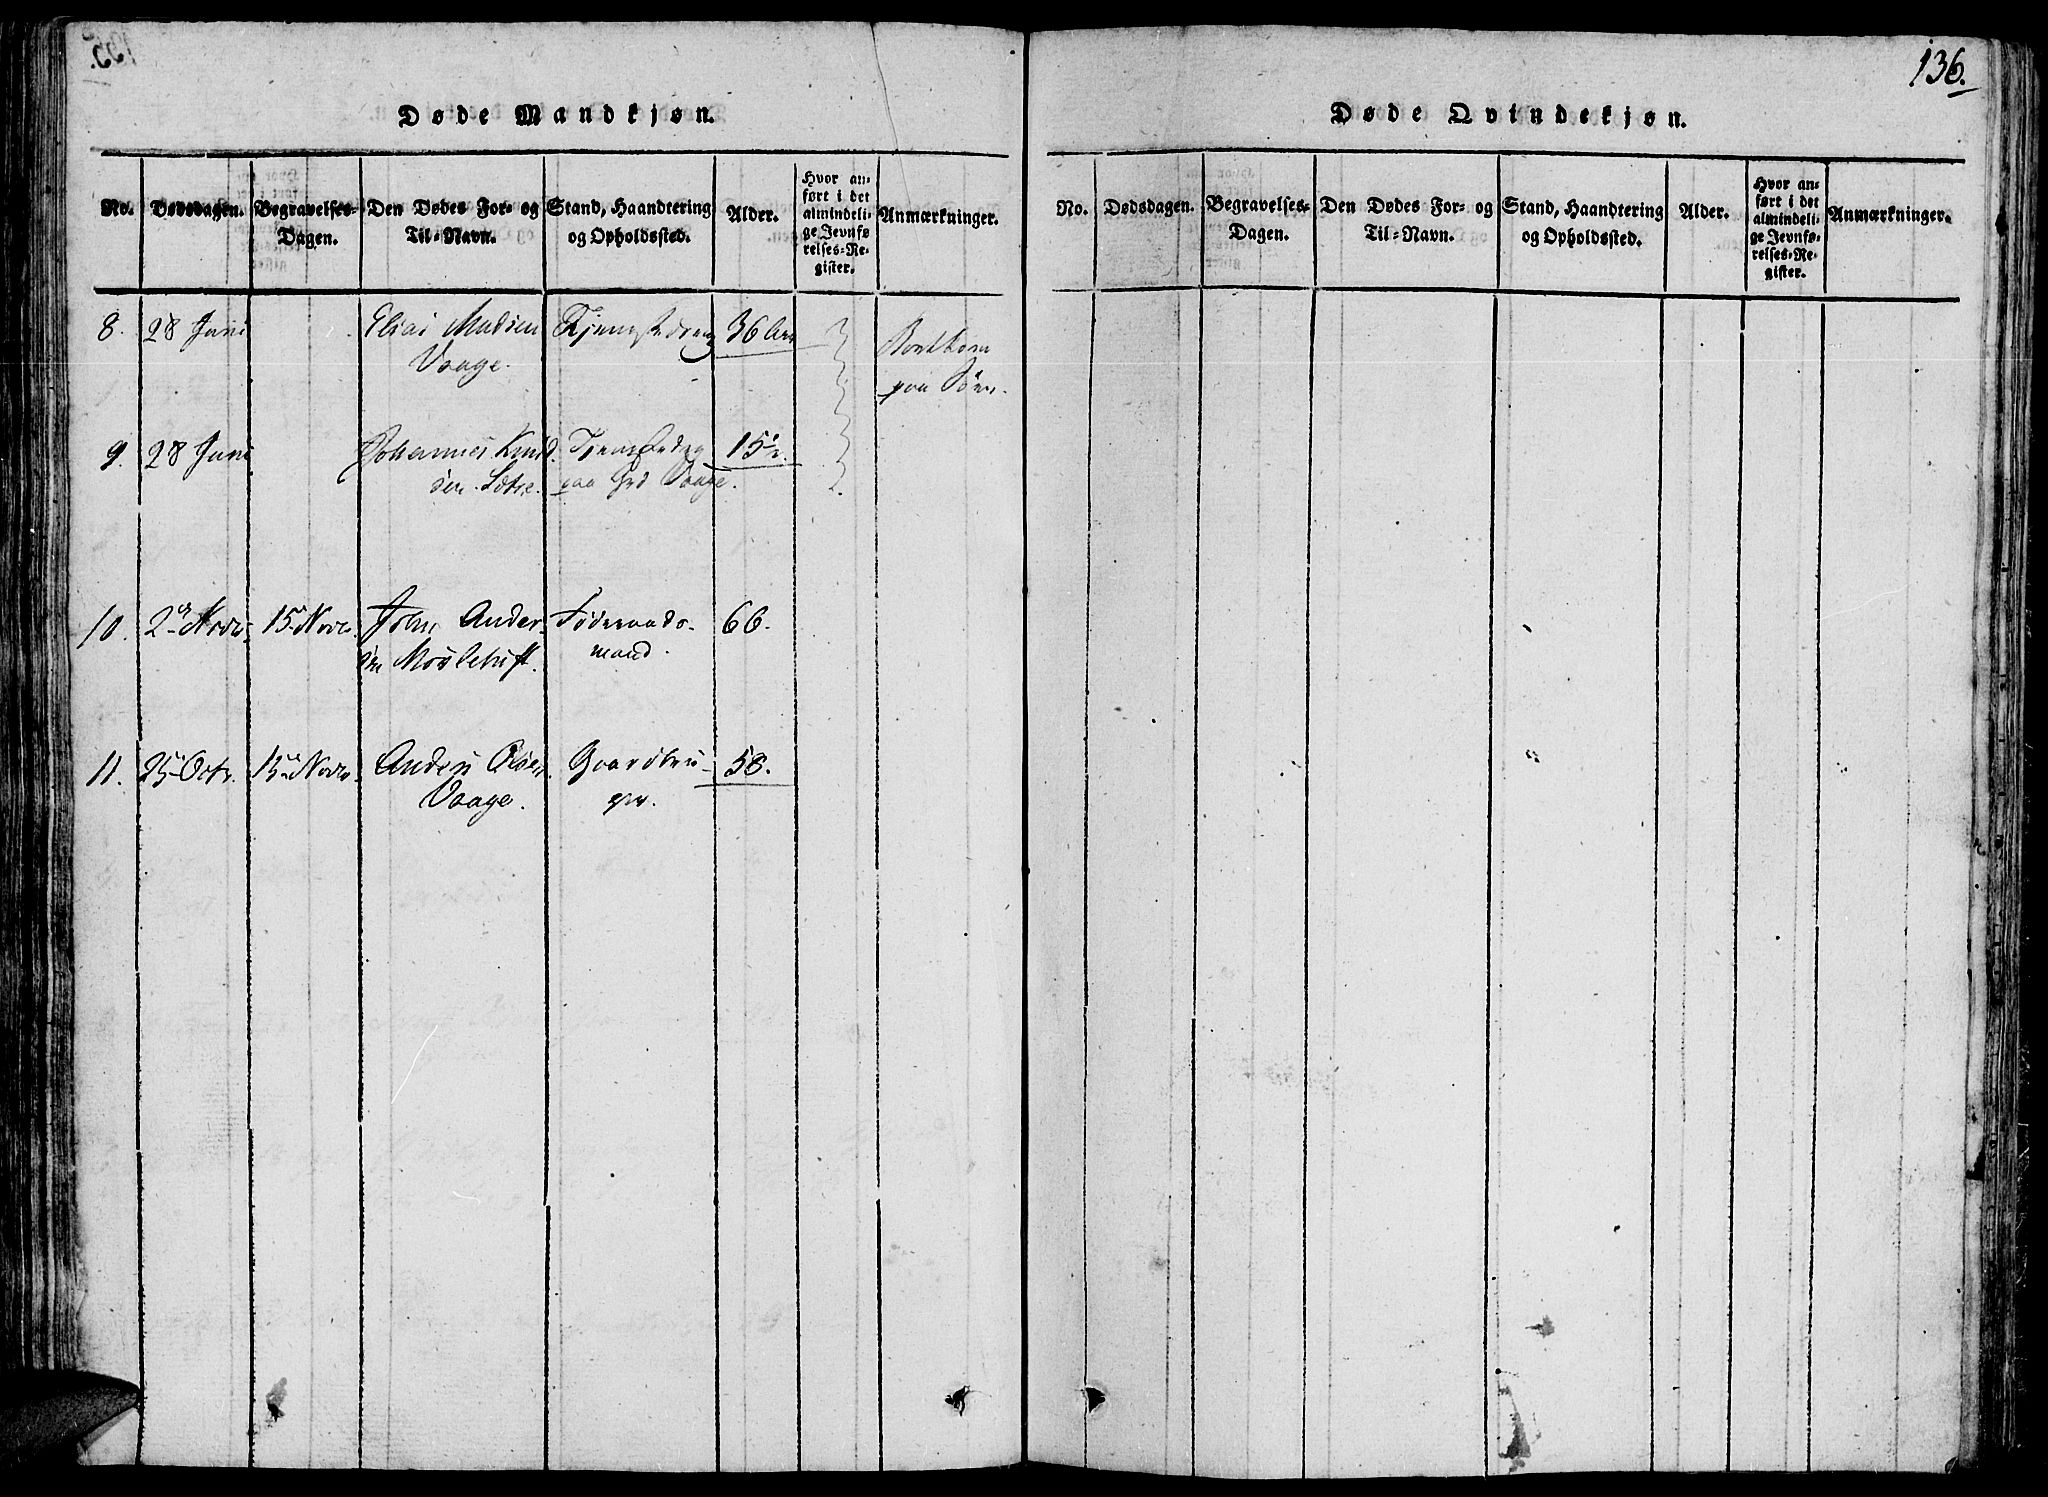 135.
Døde Mandkjøn.
No.
Dødsdagen.
Begravelses-
Dagen.
Den Dødes For- og
Til-Navn.
Stand, Haandtering
og Opholdssted.
Alder.
Hvor an-
ført i det
almindeli-
ge Jevnfø-
relses-Re-
gister.
Anmærkninger.
8. 28 Juni Elias Madsen 36 Aar
Vaage. Bortkom
paa Søen.
9. 28 Juni Johannes Knud 15
sen Sætre. paa Grd Vaage.
10. 2 Novr. 15 Novr. John Ander- Føderaads- 66.
sen mand.
11. 25 Octr. 15 Novr. Anders Gaardbru- 58.
Vaage. ger.
136.
Døde Qvindekjøn.
No.
Dødsdagen.
Begravelses-
Dagen.
Den Dødes For- og
Til-Navn.
Stand, Haandtering
og Opholdssted.
Alder.
Hvor an-
ført i det
almindeli-
ge Jevnfø-
relses-Re-
gister.
Anmærkninger.